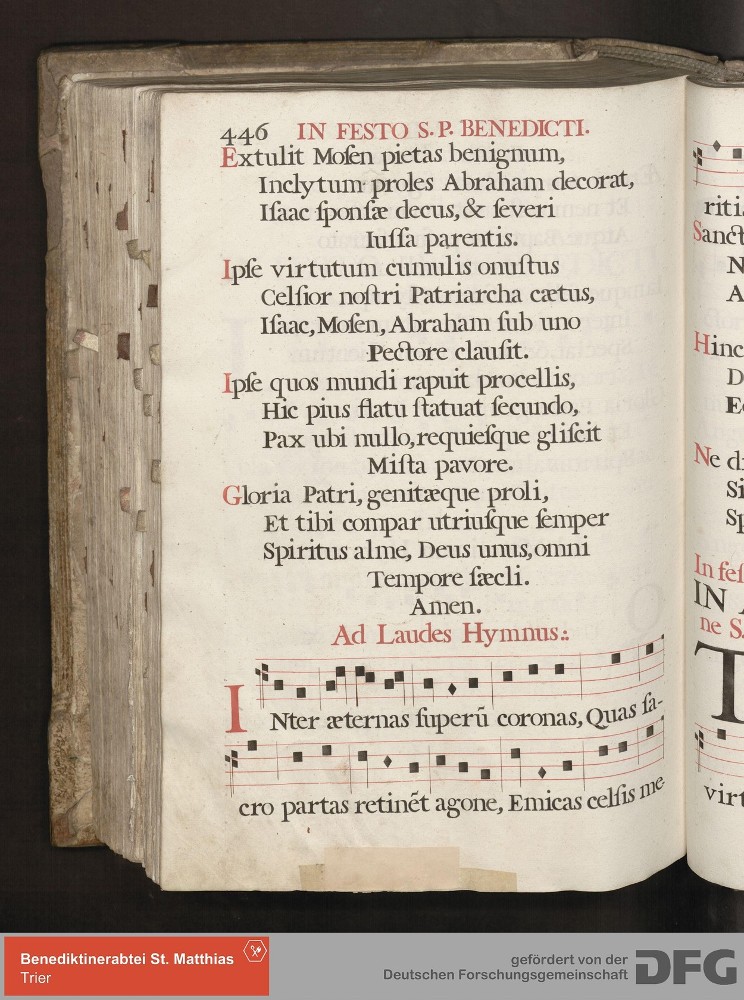 446 IN FESTO S. P. BENEDICTI.
Extulit Moſen pietas benignum,
Inclytum proles Abraham decorat,
Iſaac ſponſæ decus, & ſeveri
Iuſſa parentis.
Ipſe virtutum cumulis onuſtus
Celſior noſtri Patriarcha cætus,
Iſaac, Moſen, Abraham ſub uno
Pectore clauſit.
Ipſe quos mundi rapuit procellis,
Hic pius flatu ſtatuat ſecundo,
Pax ubi nullo, requieſque gliſcit
Miſta pavore.
Gloria Patri, genitæque proli,
Et tibi compar utriuſque ſemper
Spiritus alme, Deus unus, omni
Tempore ſæcli.
Amen.
Ad Laudes Hymnus.:.
INter æternas ſuperū coronas, Quas ſa-
cro partas retinēt agone, Emicas celſis me-
ritia
Sanct
N
A
Hinc
D
Ne di
Si
Sp
In feſ
IN A
ne S.
T
virt
Benediktinerabtei St. Matthias
Trier
gefördert von der
Deutschen Forschungsgemeinschaft
DFG